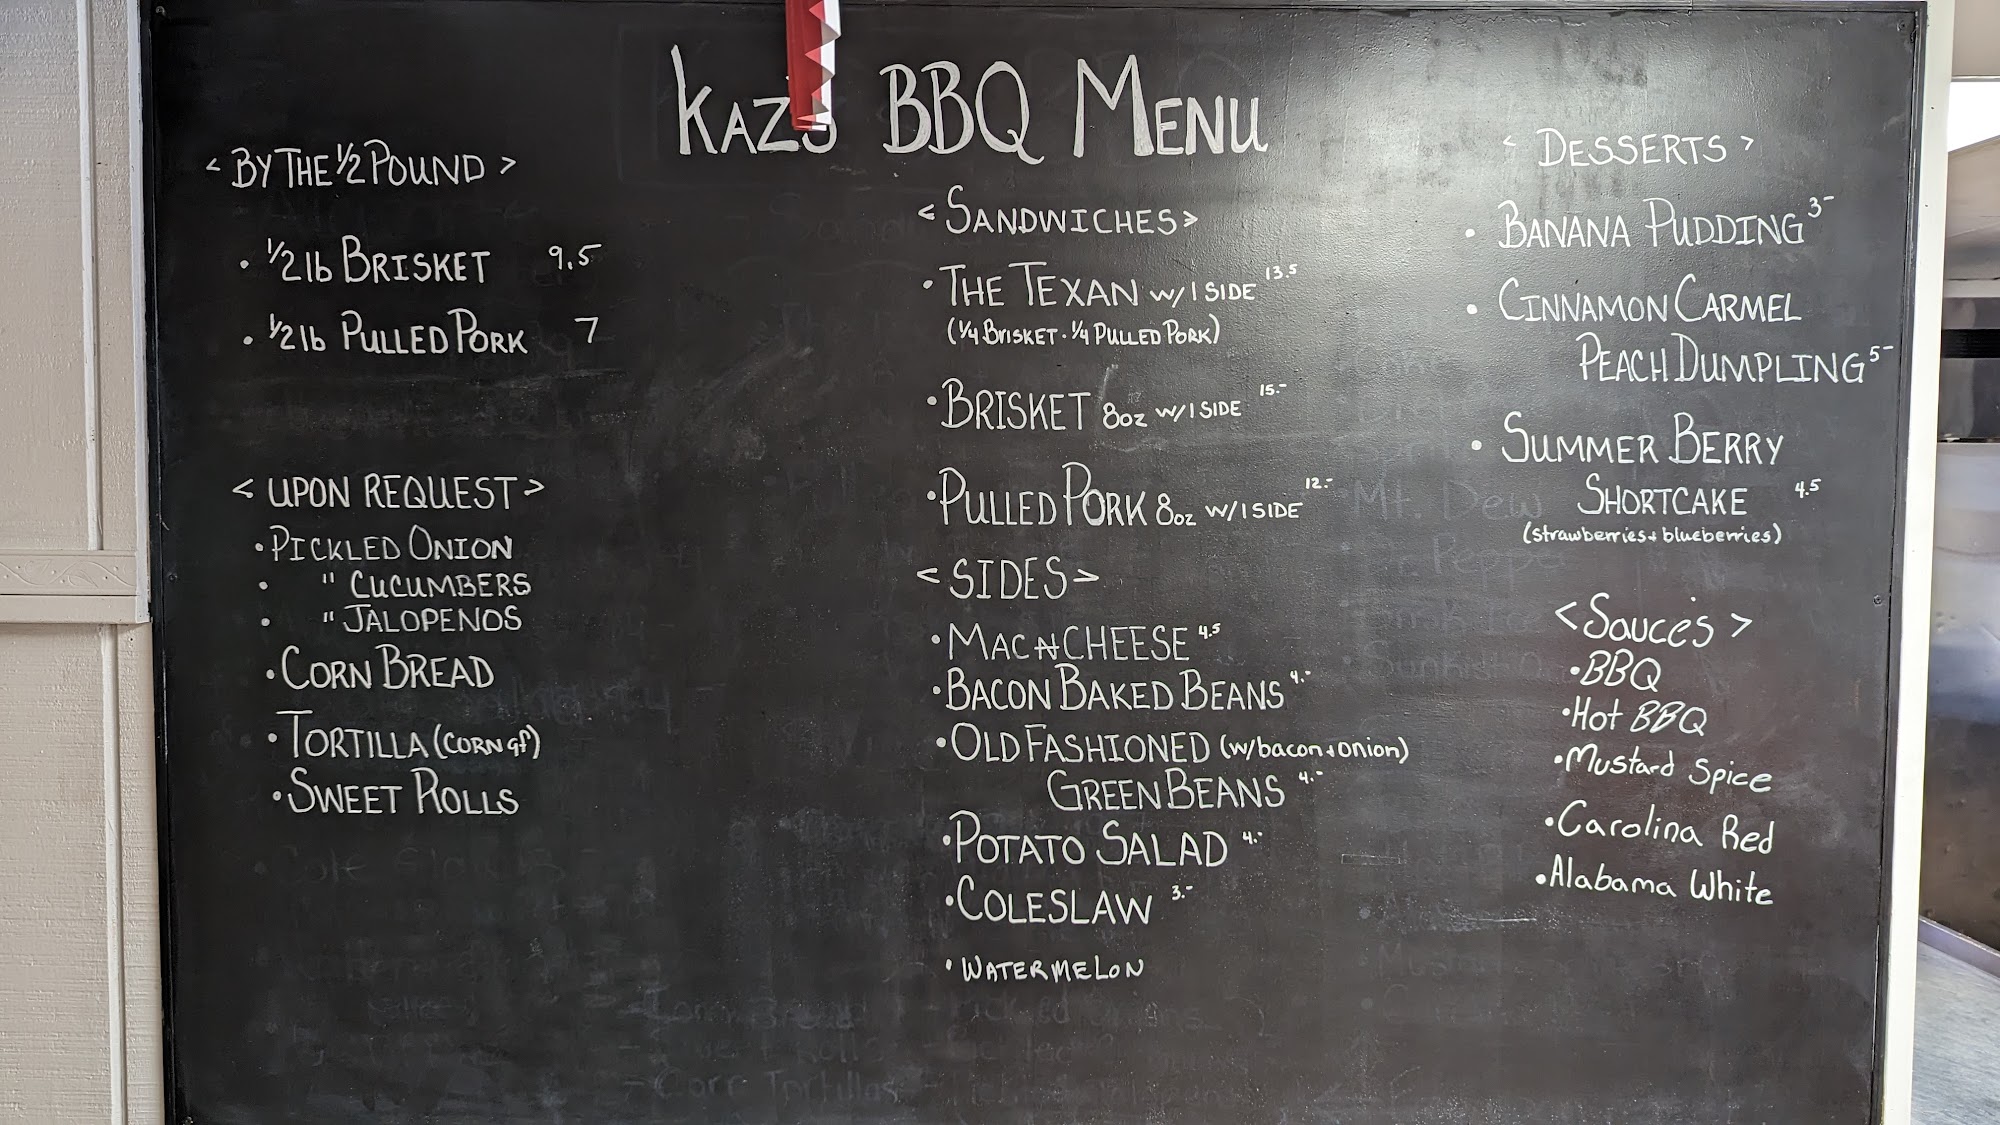 KAZ'S BBQ MENU
< BY THE 1/2 POUND >
• 1/2 lb BRISKET 9.5
• 1/2 lb PULLED PORK 7
< UPON REQUEST >
• PICKLED ONION
• " CUCUMBERS
• " JALOPENOS
• CORN BREAD
• TORTILLA (CORN gf)
• SWEET ROLLS
< SANDWICHES >
• THE TEXAN W/ 1 SIDE 13.5
(1/4 BRISKET • 1/4 PULLED PORK)
• BRISKET 8oz W/ 1 SIDE 15.-
• PULLED PORK 8oz W/ 1 SIDE 12.-
< SIDES >
• MAC N CHEESE 4.5
• BACON BAKED BEANS 4.-
• OLD FASHIONED (w/bacon + onion)
GREEN BEANS 4.-
• POTATO SALAD 4.-
• COLESLAW 3.-
• WATERMELON
< DESSERTS >
• BANANA PUDDING 3-
• CINNAMON CARMEL
PEACH DUMPLING 5-
• SUMMER BERRY
SHORTCAKE 4.5
(strawberries + blueberries)
< Sauces >
• BBQ
• Hot BBQ
• Mustard Spice
• Carolina Red
• Alabama White
Mt. Dew